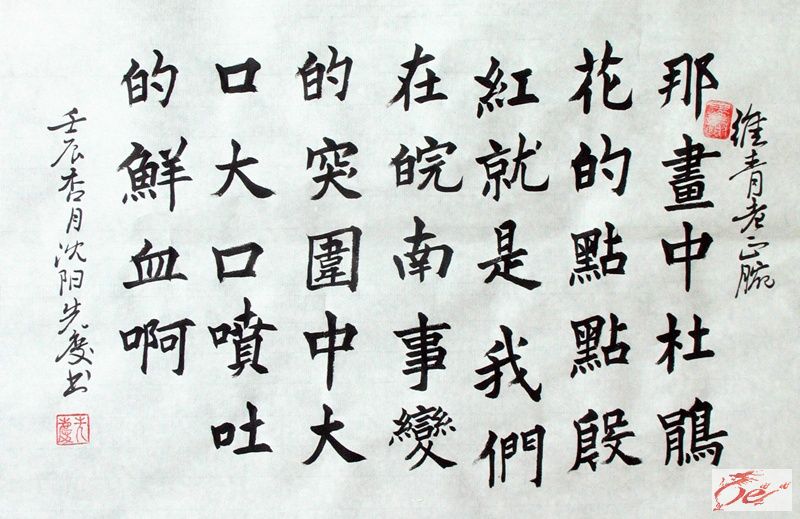 維青老正腕
那畫中杜鵑
花的點點殷
紅就是我們
在皖南事變
的突圍中大
口大口噴吐
的鮮血啊
壬辰杏月沈阳先慶书